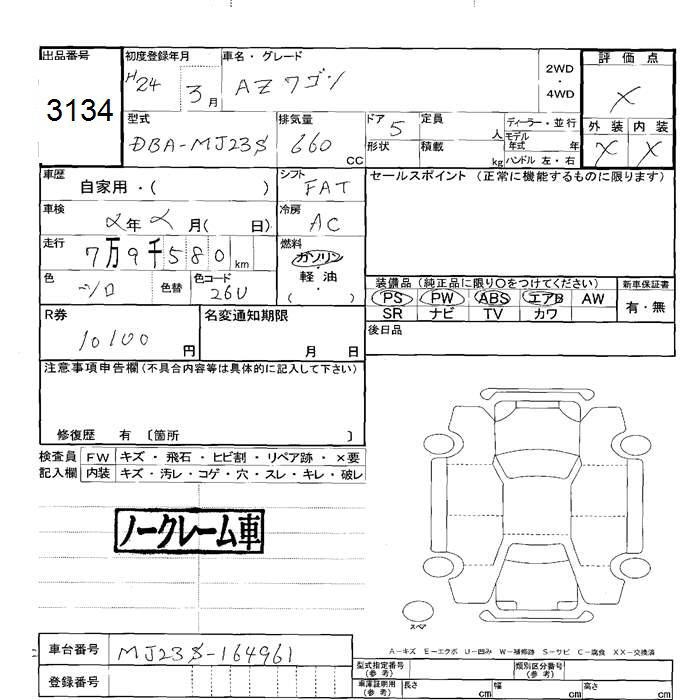 出品番号 3134
初度登録年月 H24 3月
車名・グレード AZワゴン
2WD・4WD
評価点 X
型式 DBA-MJ23S
排気量 660 CC
ドア 5
定員 人
ディーラー・並行
モデル年式 年
形状
積載 kg
ハンドル 左・右
外装 X
内装 X
車歴 自家用・( )
シフト FAT
セールスポイント (正常に機能するものに限ります)
車検 年 月( 日)
冷房 AC
走行 7万9千580km
燃料 ガソリン・軽油・( )
色 シロ 色替
色コード 26U
装備品 (純正品に限り○をつけてください)
新車保証書
PS PW ABS エアB AW
有・無
SR ナビ TV カワ
R券 10100 円
名変通知期限 月 日
後日品
注意事項申告欄(不具合内容等は具体的に記入して下さい)
修復歴 有 〔箇所 〕
検査員記入欄
FW キズ・飛石・ヒビ割・リペア跡・×要
内装 キズ・汚レ・コゲ・穴・スレ・キレ・破レ
ノークレーム車
スペア
A-キズ E-エクボ U-凹み W-補修跡 S-サビ C-腐食 XX-交換済
車台番号 MJ23S-164961
登録番号
型式指定番号 (参考)
類別区分番号 (参考)
車庫証明用 (参考) 長さ cm 幅 cm 高さ cm